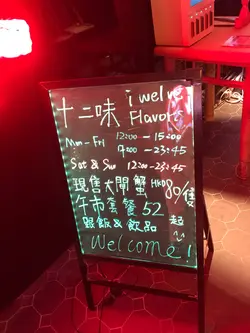 十二味 iwelve
Flavors
Mon - Fri 12:00 - 15:00
9:00 - 23:45
Sat & Sun 12:00 - 23:45
現售大閘蟹 HKD 80/隻
午市套餐 52起
跟飯 & 飲品
Welcome!